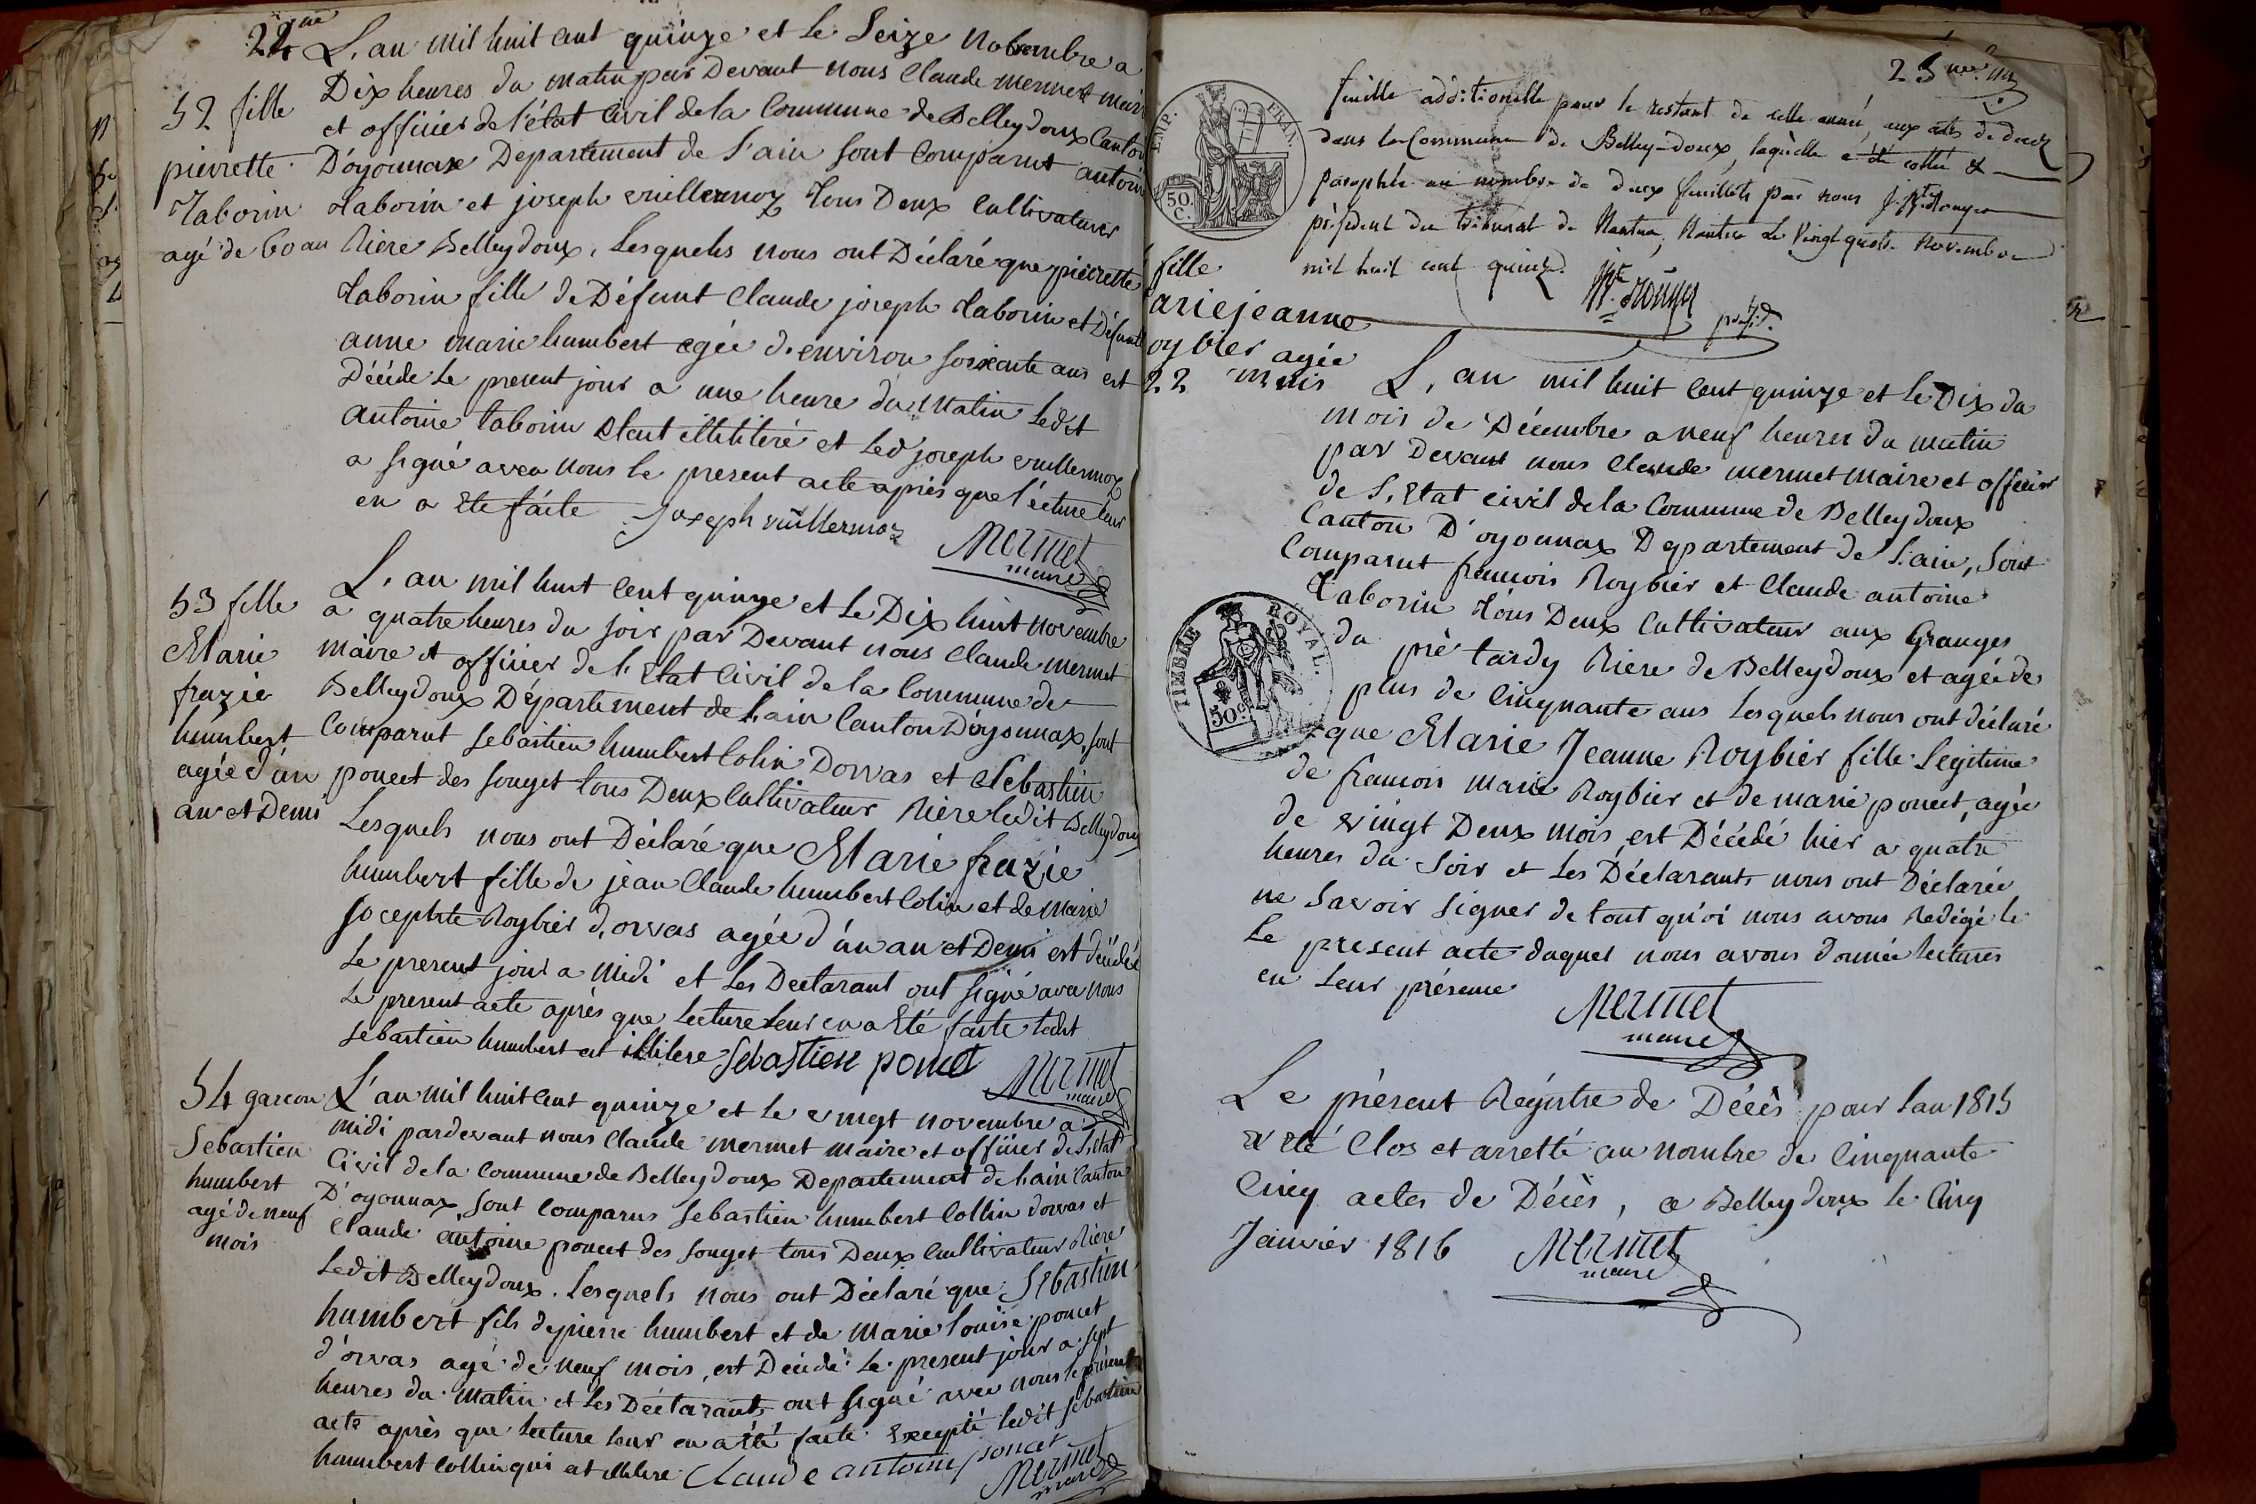 22me
52 fille
pierrette
Taborin
agé de 60 an
L'an mil huit cent quinze et le Seize Novembre a
Dix heures du matin par Devant nous Claude mermet maire
et officier de l'état Civil de la Commune de Belleydoux Canton
D'oyonnax Departement de l'ain sont Comparut antoine
taborin et joseph vuillermoz tous Deux Cultivateurs
Riere Belleydoux, Lesquels nous ont Déclaré que pierrette
taborin fille de Défunt Claude joseph taborin et Défunte
anne marie humbert agée d'environ soixante ans est
Décédé Le present jour a une heure du Matin Ledit
antoine taborin Etant illititéré et Led joseph vuillermoz
a signé avec nous le present acte après que l'écture leur
en a Eté faite Joseph vuillermoz
Mermet
maire
53 fille
Marie
frazie
humbert
agée d'un
an et Demi
L'an mil huit Cent quinze et Le Dix huit novembre
a quatre heures du soir par Devant nous Claude mermet
maire et officier de l'Etat Civil de la Commune de
Belleydoux Département de Lain Canton Doyonnax, sont
Comparut sebastien humbert Colin Dorvas et Sebastien
poncet des souget tous Deux Cultivateur Riere ledit Belleydoux
Lesquels nous ont Déclaré que Marie frazie
humbert fille de jean Claude humbert Colin et de marie
josephte Roybier d'orvas agée d'un an et Demi est décédée
Le present jour a Midi et Les Declarant ont signé avec nous
Le present acte après que Lecture Leur en a Eté faite ledit
sebastien humbert est illitere Sebastien poncet
Mermet
maire
54 garcon
Sebastien
humbert
agé de neuf
mois
L'an mil huit Cent quinze et le vingt novembre a
midi pardevant nous Claude mermet maire et officier de l'état
Civil de la Commune de Belleydoux Departement de Lain Canton
D'oyonnax, sont Comparus sebastien humbert Collin dorvas et
Claude antoine poncet des souget tous Deux Cultivateur Riere
Ledit Belleydoux. Lesquels nous ont Déclaré que Sebastien
humbert fils de pierre humbert et de Marie Louise poncet
d'orvas agé de neuf mois, est Décédé le present jour a sept
heures du matin et Les Déclarants ont signé avec nous le present
acte après que Lecture Leur en a été faite Excepté ledit sebastien
humbert Collin qui est illitere Claude antoine poncet
Mermet
maire
23me
EMP. FRAN.
50. C.
feuille additionelle pour le restant de cette année, aux actes de deces
dans la Commune de Belley-doux, laquelle a été cottée &
paraphée au nombre de deux feuillets par nous
président du tribunal de Nantua, Nantua Le Vingt quatre Novembre
mil huit cent quinze.
fille
arie jeanne
oybier agée
22 mois
TIMBRE ROYAL.
50 c
L'an mil huit Cent quinze et Le Dix du
mois de Décembre a neuf heures du matin
par Devant nous Claude mermet maire et officier
de L'Etat civil de la Commune de Belleydoux
Canton D'oyonnax Departement de L'ain, sont
Comparut francois Roybier et Claude antoine
Taborin tous Deux Cultivateur aux Granges
du prè tardy Riere de Belleydoux et agée de
plus de Cinquante ans Lesquels nous ont déclaré
que Marie Jeanne Roybier fille Legitime
de francois marie Roybier et de marie poncet, agée
de vingt Deux mois, est Décédé hier a quatre
heures du soir et Les Déclarants nous ont Déclarée
ne savoir signer de tout qu'oi nous avons Redigé le
Le present acte duquel nous avons donnée lectures
en Leur présence
Mermet
maire
Le présent Régistre de Décès pour Lan 1815
a été Clos et arretté au nombre de Cinquante
Cinq actes de Décès, a Belleydoux Le Cinq
Janvier 1816
Mermet
maire